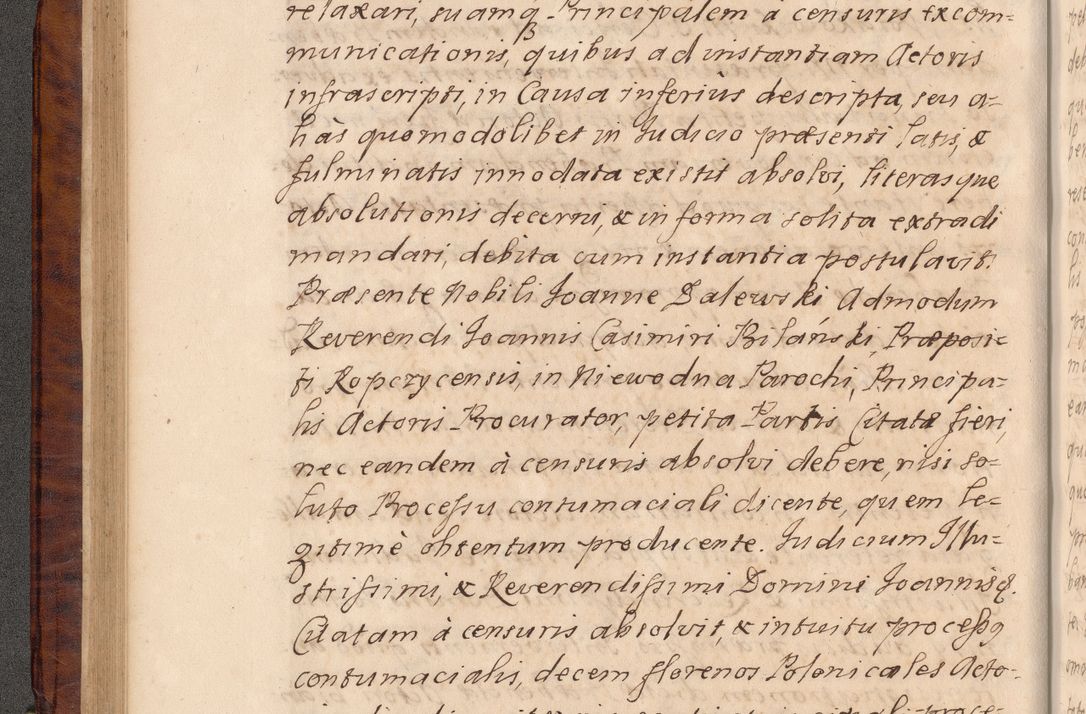 relaxari, suamq́ Principalem à censuris excom=
municationis, quibus ad instantiam Actoris
infrascripti, in Causa inferius descripta, seu a=
liàs quomodolibet in Iudicio præsenti latis, &
fulminatis innodata existit absolvi, literasque
absolutionis decerni, & in forma solita extradi
mandari, debita cum instantia postulavit.
Præsente Nobili Joanne Zalewski Admodum
Reverendi Joannis Casimiri Bilański, Præposi=
ti Ropczycensis in Niewodna Parochi, Principa=
lis Actoris Procurator, petita Partis Citatæ fieri,
nec eandem à censuris absolvi debere, nisi so=
luto Processu contumaciali dicente, quem le=
gitimè obtentum producente. Iudicium Illu=
strissimi, & Reverendissimi Domini Joannis &.
Citatam à censuris absolvit, & intuitu processq
contumacialis, decem florenos Polonicales Acto=